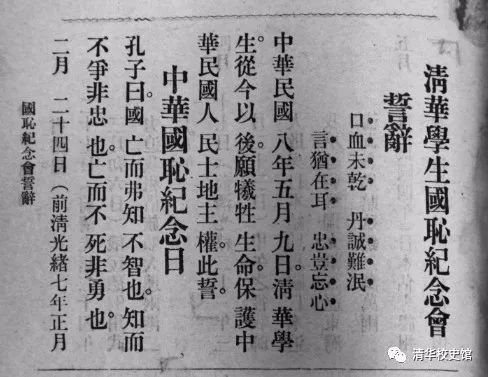 清華學生國恥紀念會
誓辭
口血未乾　丹誠難泯
言猶在耳　忠豈忘心
中華民國八年五月九日清華學
生從今以後。願犧牲生命保護中
華民國人民土地主權此誓。
中華國恥紀念日
孔子曰。國亡而弗知不智也。知而
不爭非忠也。亡而不死非勇也。
二月　二十四日（前清光緒七年正月
國恥紀念會誓辭
清华校史馆